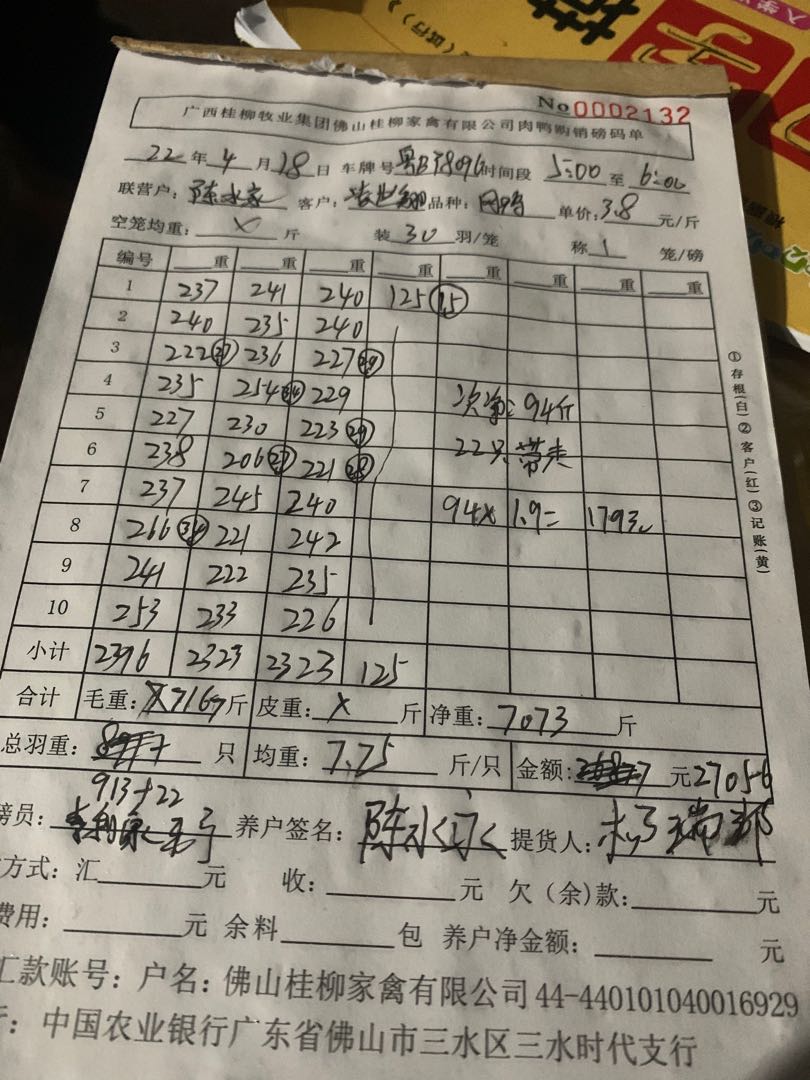 No 0002132
广西桂柳牧业集团佛山桂柳家禽有限公司肉鸭购销磅码单
22年4月28日 车牌号 时间段 5:00 至 6:00
联营户: 陈水家 客户: 品种: 单价: 3.8 元/斤
空笼均重: X 斤 装 30 羽/笼 称 1 笼/磅
编号 重 重 重 重 重 重 重 重
1 237 241 240 125 15
2 240 235 240
3 222 27 236 227 29
4 235 254 229 次净: 94斤
5 227 230 223 29 22只 带走
6 238 206 27 221 28
7 237 245 240 94x 1.9=
8 266 34 221 242
9 241 222 235
10 253 233 226
小计 2396 2323 2323 125
合计 毛重: 7167斤 皮重: X 斤 净重: 7073 斤
总羽重: 只 均重: 7.75 斤/只 金额: 元 27056
913+22
磅员: 养户签名: 提货人:
方式: 汇 元 收: 元 欠(余)款: 元
费用: 元 余料 包 养户净金额: 元
汇款账号: 户名: 佛山桂柳家禽有限公司 44-440101040016929
行: 中国农业银行广东省佛山市三水区三水时代支行
①存根(白)②客户(红)③记账(黄)